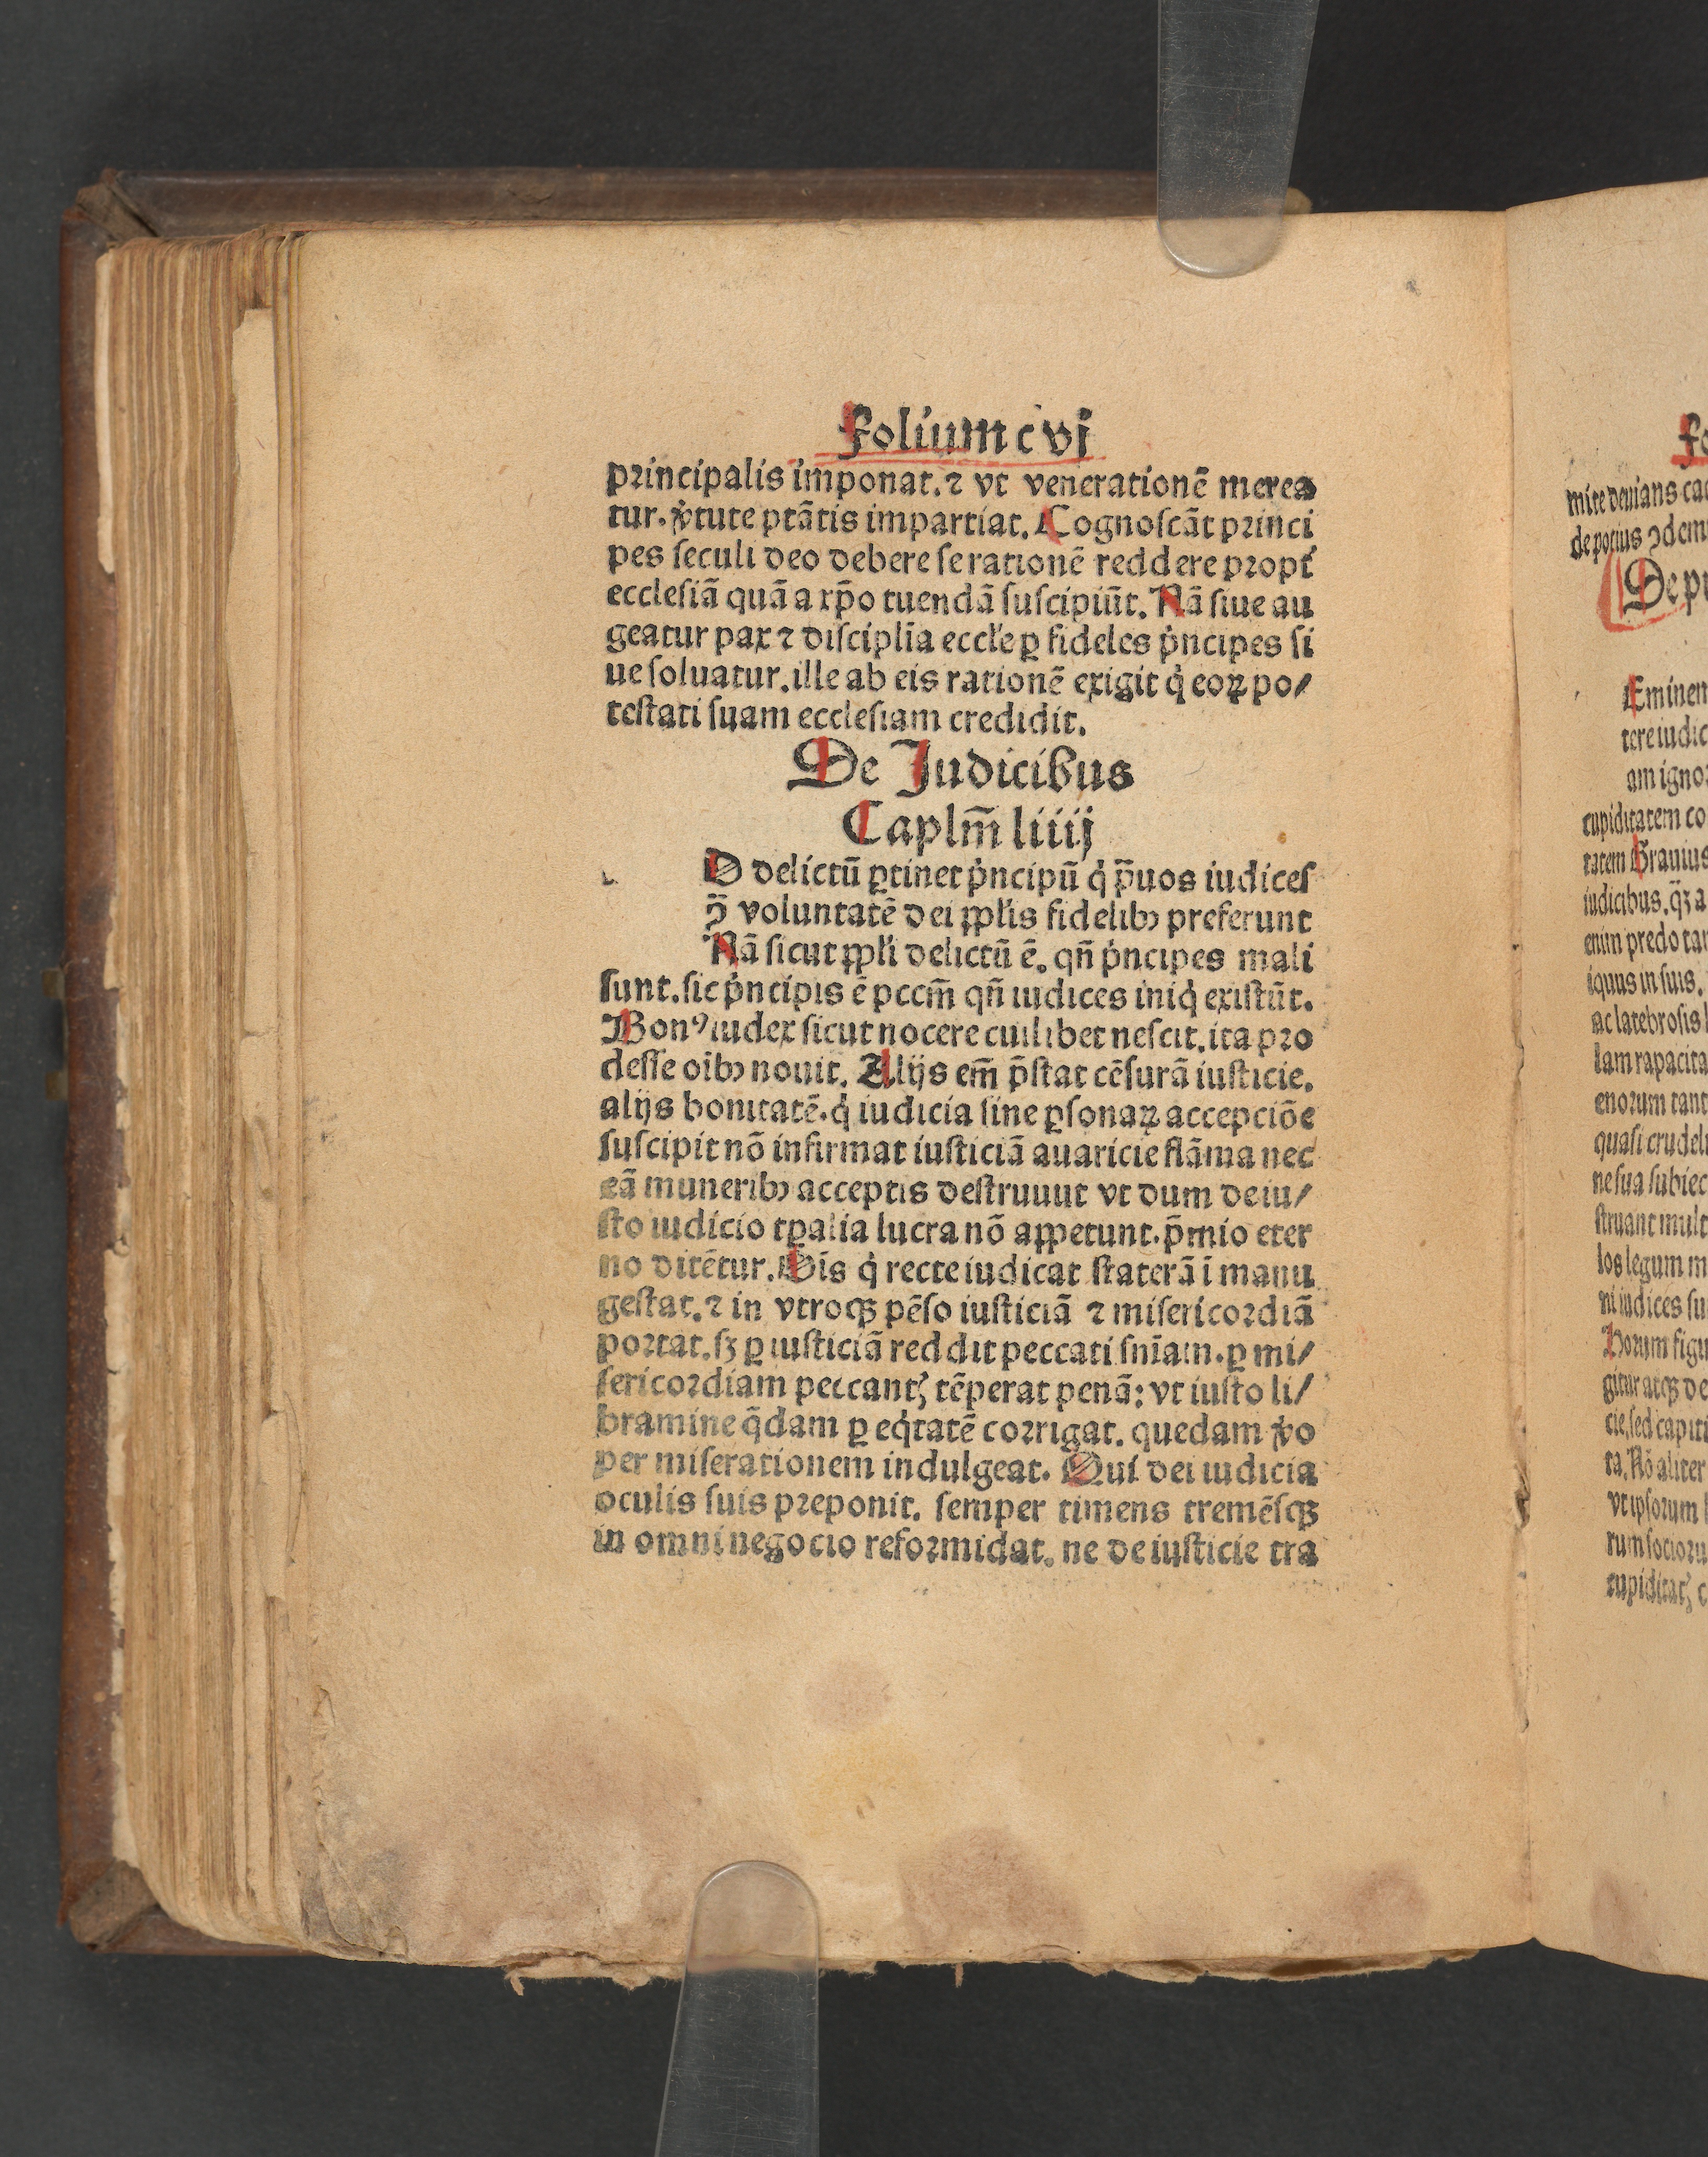 Folium c vj
principalis imponat. ⁊ vt venerationē merea
tur. v̓tute ptātis impartiat. Cognoſcāt princi
pes ſeculi deo debere ſe rationē reddere propt̓
eccleſiā quā a xp̄o tuendā ſuſcipiūt. Nā ſiue au
geatur pax ⁊ diſciplīa eccl̓e ꝑ fideles p̓ncipes ſi
ue ſoluatur. ille ab eis rationē exigit q̓ eoꝝ po/
teſtati ſuam eccleſiam credidit.
De Judicibus
Caplm̄ liiij
D delictū ꝑtinet p̓ncipū q̓ p̄uos iudiceſ
ꝯ̄ voluntatē dei ppl̓is fidelibꝰ preferunt
Nā ſicut ppl̓i delictū ē. qn̄ p̓ncipes mali
ſunt. ſic p̓ncipis ē pccm̄ qn̄ iudices iniq̓ exiſtūt.
Bonꝰ iudex ſicut nocere cuilibet neſcit. ita pro
deſſe oībꝫ nouit. Alijs em̄ p̄ſtat cēſurā iuſticie.
alijs bonitatē. q̓ iudicia ſine ꝑſonaꝝ accepciōe
ſuſcipit nō infirmat iuſticiā auaricie flāma nec
eā muneribꝫ acceptis deſtruuut vt dum de iu/
ſto iudicio tꝑalia lucra nō appetunt. p̄mio eter
no ditētur. Oīs q̓ recte iudicat ſtaterā ī manu
geſtat. ⁊ in vtroqꝫ pēſo iuſticiā ⁊ miſericordiā
portat. ſꝫ ꝑ iuſticiā reddit peccati ſnīam. ꝑ mi/
ſericordiam peccantꝭ tēperat penā: vt iuſto li/
bramine q̄dam ꝑ eq̓tatē corrigat. quedam v̓o
per miſerationem indulgeat. Qui dei iudicia
oculis ſuis preponit. ſemper timens tremēſqꝫ
in omni negocio reformidat. ne de iuſticie tra
mite deuians
de potius
De
tere
cupiditatem
tatem Grauius
iudicibus.
enim predo
iquus in ſuis.
ac latebroſis
lam
enorum
quaſi
ne ſua
ſtruant
los legum
ni iudices
gitur atqꝫ de
cie, ſed
ta. Nō aliter
vt ipſorum
cupiditatꝭ